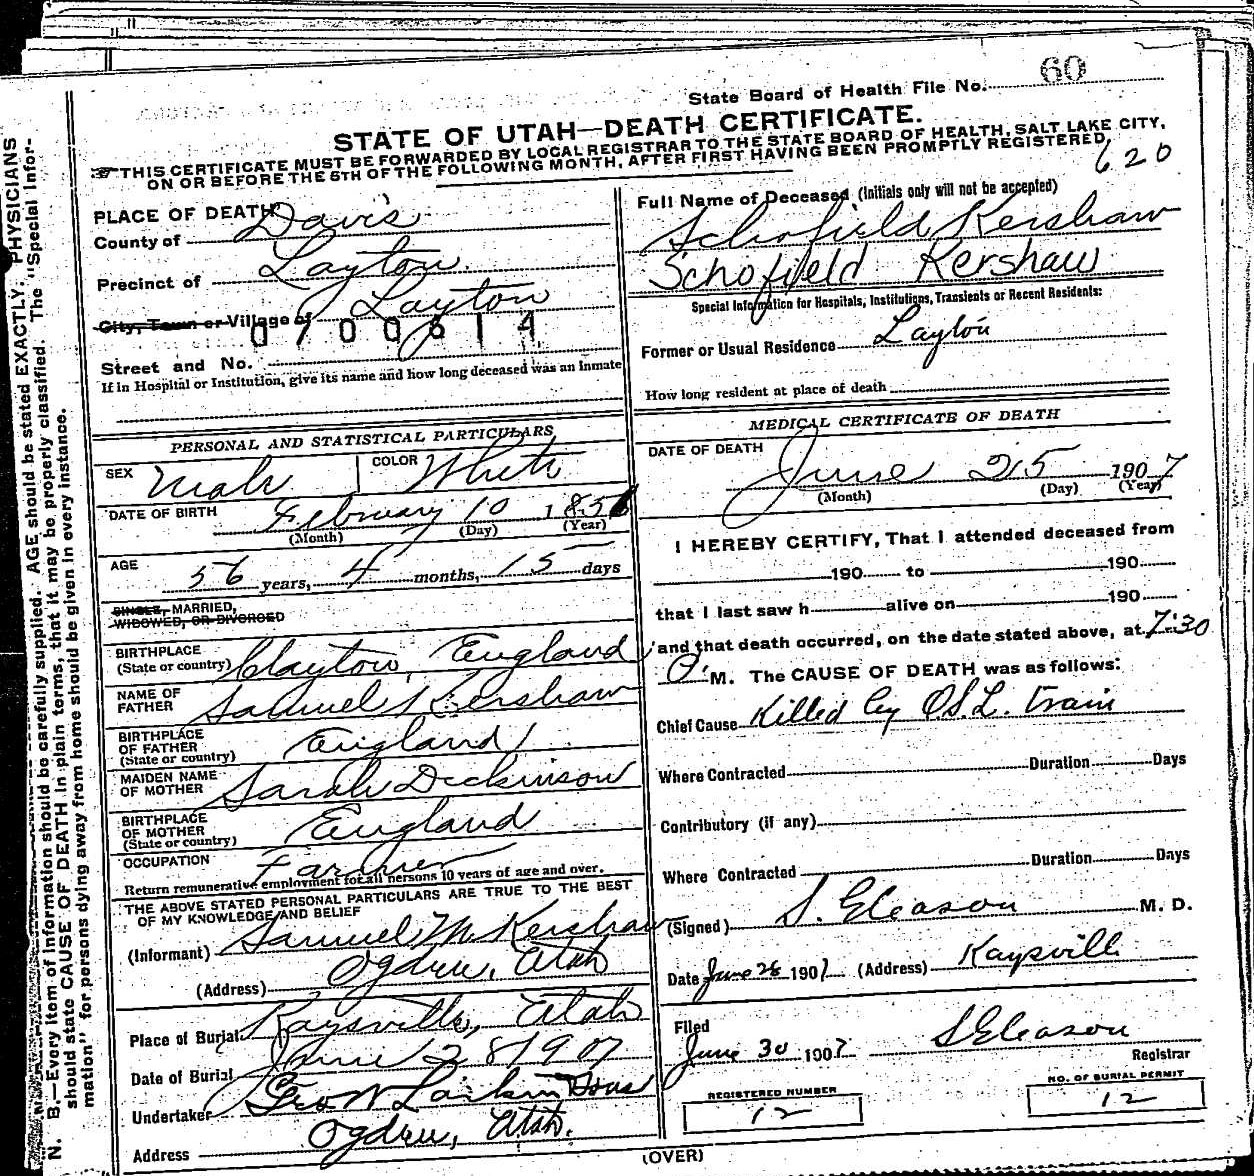 60
State Board of Health File No.
STATE OF UTAH—DEATH CERTIFICATE.
THIS CERTIFICATE MUST BE FORWARDED BY LOCAL REGISTRAR TO THE STATE BOARD OF HEALTH, SALT LAKE CITY,
ON OR BEFORE THE 5TH OF THE FOLLOWING MONTH, AFTER FIRST HAVING BEEN PROMPTLY REGISTERED.
620
PLACE OF DEATH
County of Davis
Precinct of Layton
City, Town or Village of Layton
0700614
Street and No.
If in Hospital or Institution, give its name and how long deceased was an Inmate
PERSONAL AND STATISTICAL PARTICULARS
SEX Male COLOR White
DATE OF BIRTH February 10 1851
(Month) (Day) (Year)
AGE 56 years, 4 months, 15 days
SINGLE, MARRIED,
WIDOWED, OR DIVORCED
BIRTHPLACE
(State or country) Clayton, England
NAME OF
FATHER Samuel Kershaw
BIRTHPLACE
OF FATHER
(State or country) England
MAIDEN NAME
OF MOTHER Sarah Dickinson
BIRTHPLACE
OF MOTHER
(State or country) England
OCCUPATION Farmer
Return remunerative employment for all persons 10 years of age and over.
THE ABOVE STATED PERSONAL PARTICULARS ARE TRUE TO THE BEST
OF MY KNOWLEDGE AND BELIEF
(Informant) Samuel M. Kershaw
(Address) Ogden, Utah
Place of Burial Kaysville, Utah
Date of Burial June 28 1907
Undertaker Geo W Larkin Sons
Address Ogden, Utah.
Full Name of Deceased (Initials only will not be accepted)
Schofield Kershaw
Schofield Kershaw
Special Information for Hospitals, Institutions, Transients or Recent Residents:
Former or Usual Residence Layton
How long resident at place of death
MEDICAL CERTIFICATE OF DEATH
DATE OF DEATH
June 25 1907
(Month) (Day) (Year)
I HEREBY CERTIFY, That I attended deceased from
190 to 190
that I last saw h alive on 190
and that death occurred, on the date stated above, at 7:30
P. M. The CAUSE OF DEATH was as follows:
Chief Cause Killed by O.S.L. train
Where Contracted Duration Days
Contributory (if any)
Where Contracted Duration Days
(Signed) S. Gleason M. D.
Date June 26 1907 (Address) Kaysville
Filed
June 30 1907 S Gleason
Registrar
REGISTERED NUMBER
12
NO. OF BURIAL PERMIT
12
(OVER)
N. B.—Every item of information should be carefully supplied. AGE should be stated EXACTLY. PHYSICIANS
should state CAUSE OF DEATH in plain terms, that it may be properly classified. The "Special Infor-
mation" for persons dying away from home should be given in every instance.